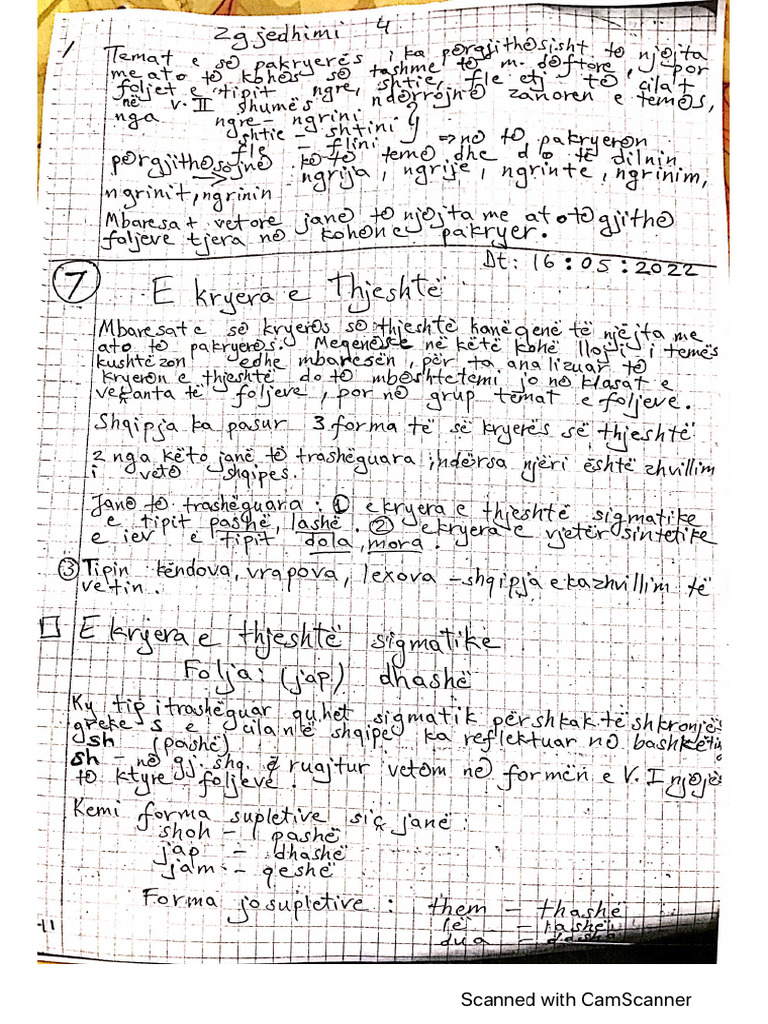 Zgjedhimi 4
Temat e së pakryerës i ka përgjithësisht të njëjta
me ato të kohës së tashme të m. dëftore, por
foljet e tipit ngre, shtie, fle etj të cilat
në v. II shumës ndërrojnë zanoren e temës,
nga ngre - ngrini
shtie - shtini
fle - flini => në të pakryerën
përgjithësojnë këtë temë dhe do të dilnin
ngrija, ngrije, ngrinte, ngrinim,
ngrinit, ngrinin
Mbaresat vetore janë të njëjta me ato të gjithë
foljeve tjera në kohën e pakryer.
Dt: 16:05:2022
7 E kryera e Thjeshtë
Mbaresat e së kryerës së thjeshtë kanë qenë të njëjta me
ato të pakryerës. Megenëse në këtë kohë lloji i temës
kushtëzon edhe mbaresën, për ta analizuar të
kryerën e thjeshtë do të mbështetemi jo në klasat e
veçanta të foljeve, por në grup temat e foljeve.
Shqipja ka pasur 3 forma të së kryerës së thjeshtë
2 nga këto janë të trashëguara, ndërsa njëri është zhvillim
i vetë shqipes.
Janë të trashëguara: ① e kryera e thjeshtë sigmatike
e tipit pashë, lashë. ② e kryera e vjetër sintetike
e iev e tipit dola, mora.
③ Tipin këndova, vrapova, lexova - shqipja e ka zhvillim të
vetin.
E kryera e thjeshtë sigmatike
Folja: (jap) dhashë
Ky tip i trashëguar quhet sigmatik për shkak të shkronjës
greke s e cila në shqipe ka reflektuar në bashkëtin
sh (pashë)
sh - në gj. shq. ruajtur vetëm në formën e V. I njëjës
të ktyre foljeve.
Kemi forma supletive siç janë:
shoh - pashë
jap - dhashë
jam - qeshë
Forma josupletive: them - thashë
lë - lashë
dua - dasha
-11
Scanned with CamScanner